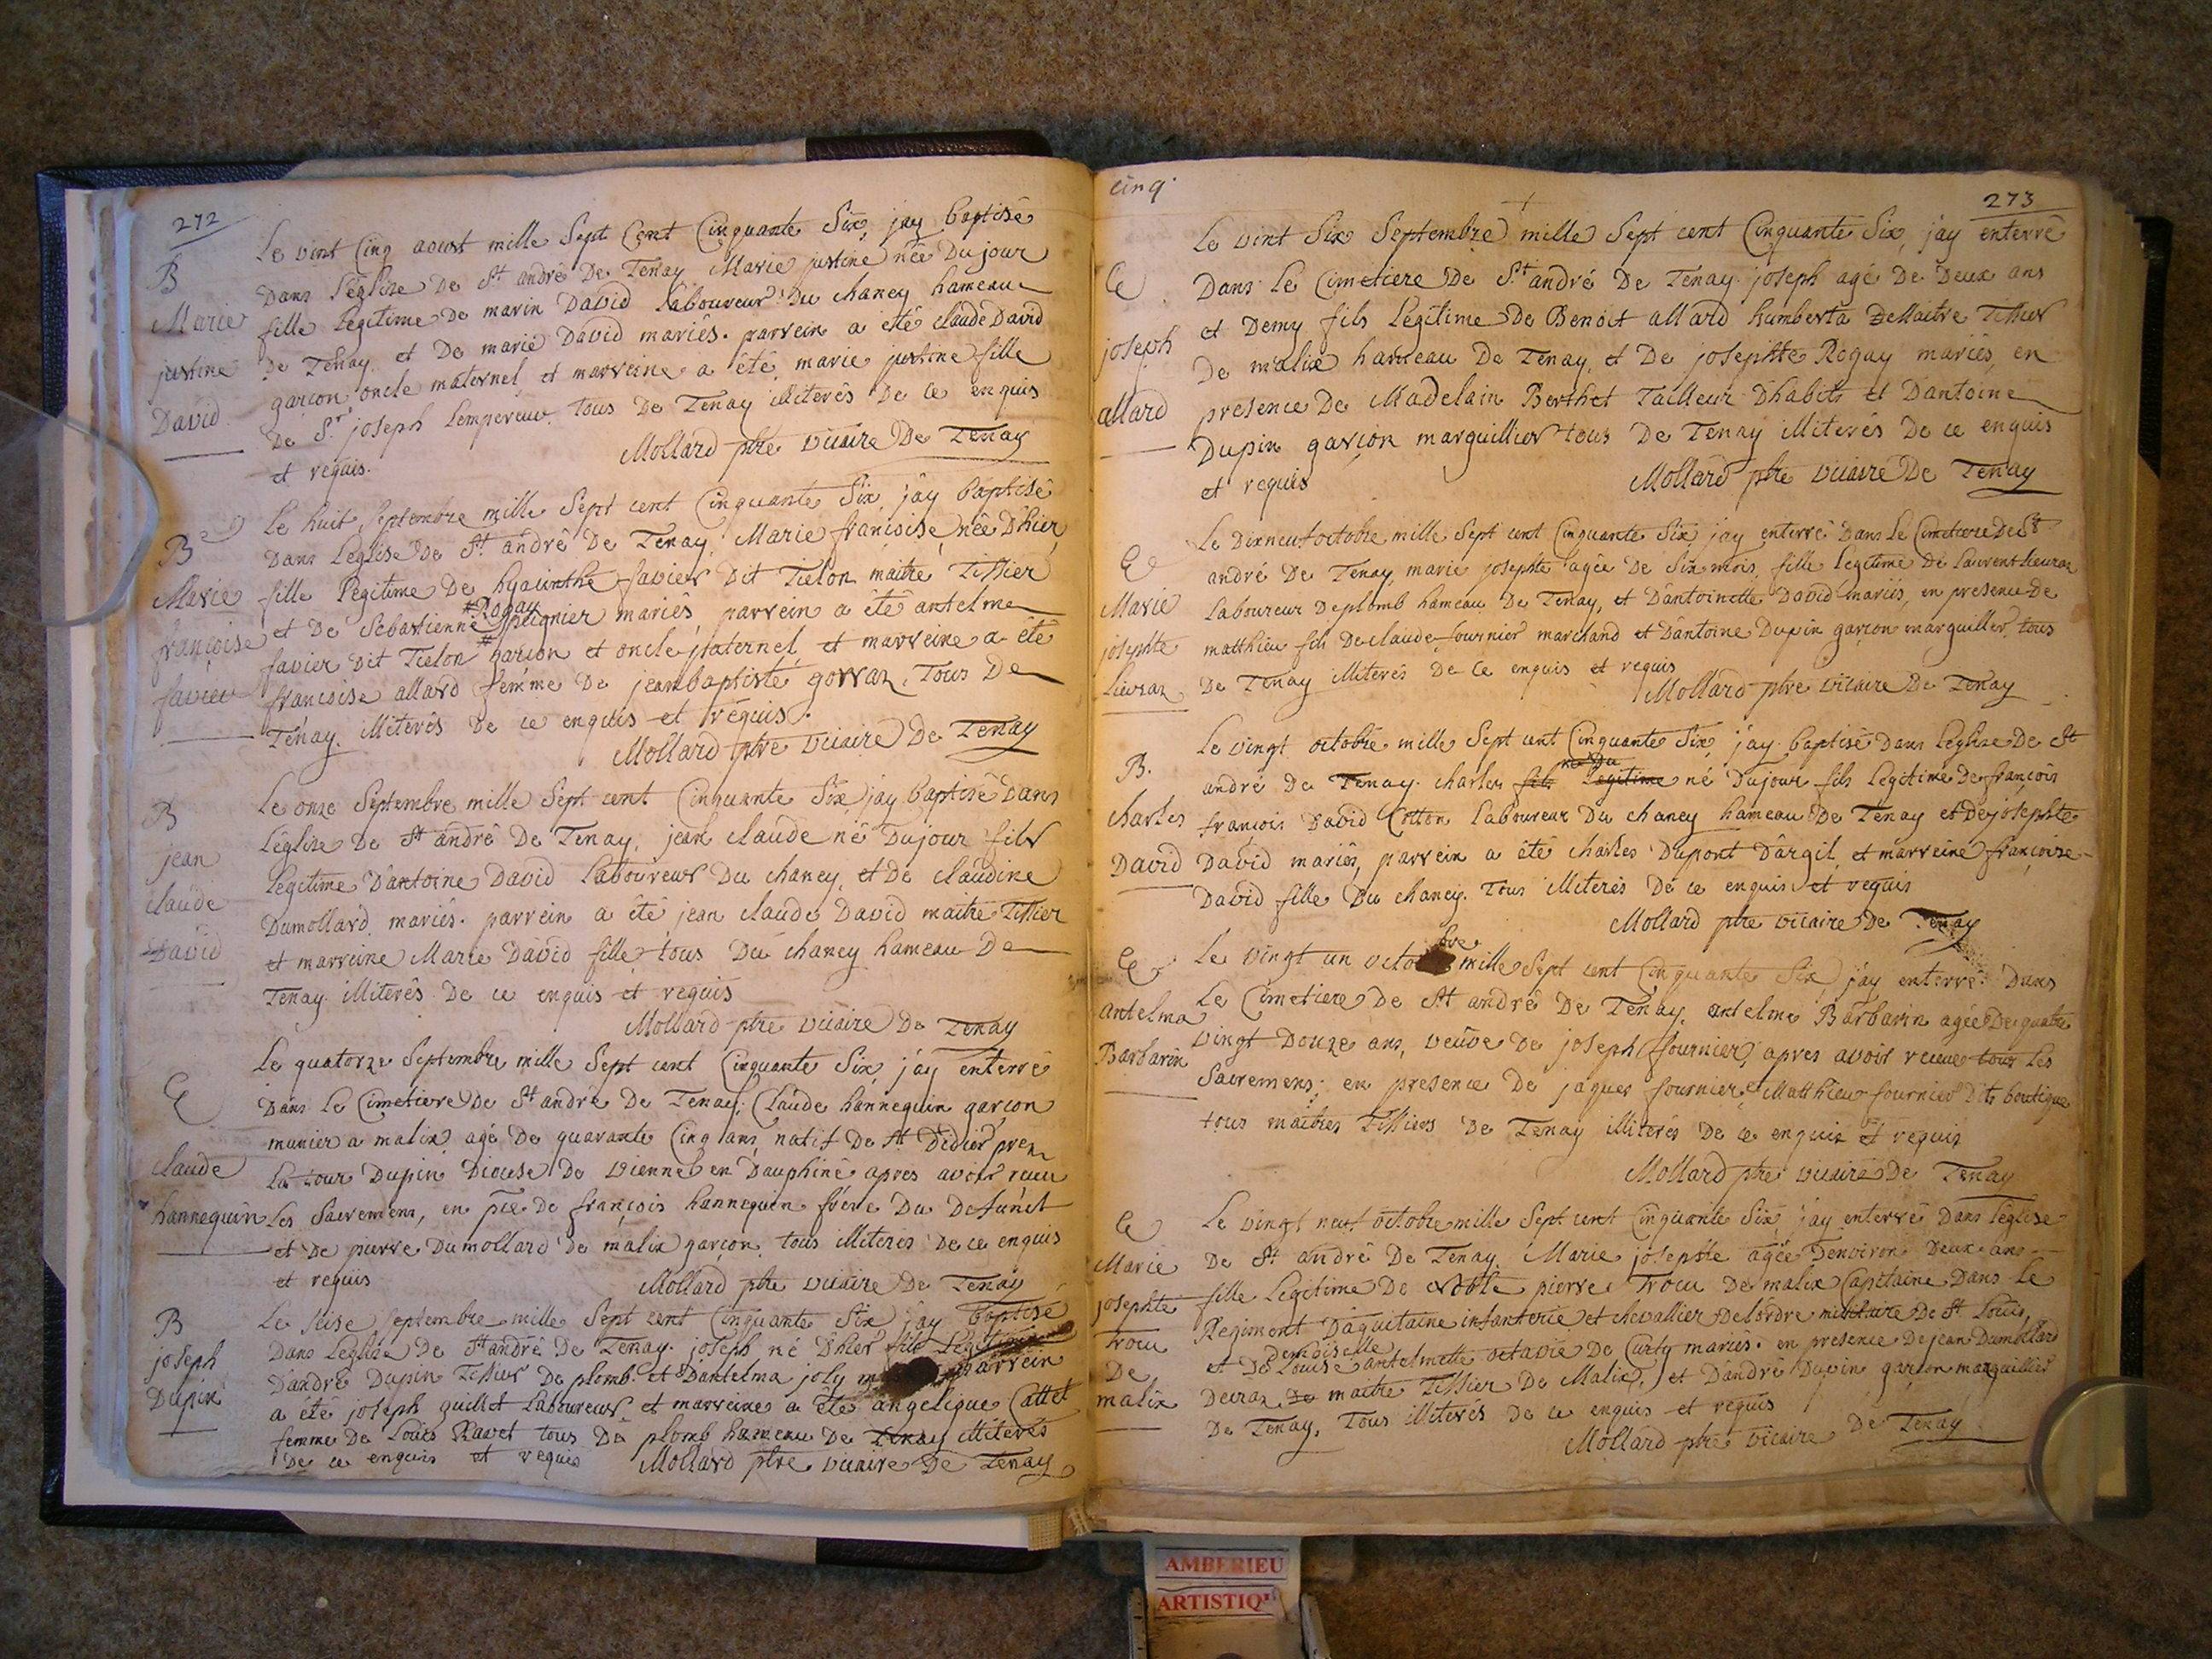 272
Le vint Cinq aoust mille Sept Cent Cinquante Six, jay baptisé
B
Dans l'église De St andré De Tenay Marie justine née Dujour
Marie
fille légitime De marin David laboureur Du chaney hameau
justine
De Tenay, et De marie David mariés. parrein a été claude David
David
garçon oncle maternel, et marreine a été marie justine fille
De Sr joseph Lempereur. tous De Tenay illiterés De ce enquis
et requis.
Mollard ptre vicaire De Tenay
Le huit Septembre mille Sept cent Cinquante Six, j'ay baptisé
B
Dans l'église De St andré De Tenay, Marie françoise, née D'hier,
Marie
fille légitime De hyacinthe favier Dit Tielon maitre Tissier
françoise
et De Sebastienne #Rogay mariés, parrein a été antelme
favier
favier Dit Tielon # garçon et oncle paternel, et marreine a été
françoise allard femme De jeanbaptiste gorraz. Tous De
Tenay. illiterés De ce enquis et requis.
Mollard ptre vicaire De Tenay
Le onze Septembre mille Sept cent Cinquante Six, j'ay baptisé Dans
B
l'église De St andré De Tenay, jean claude né Dujour fils
jean
légitime D'antoine David laboureur Du chaney, et De claudine
claude
Dumollard mariés. parrein a été jean claude David maitre Tissier
David
et marreine Marie David fille tous Du chaney hameau De
Tenay. illiterés De ce enquis et requis
Mollard ptre vicaire De Tenay
Le quatorze Septembre mille Sept cent Cinquante Six, j'ay enterré
E
Dans Le Cimetiere De St andré De Tenay, Claude hannequin garçon
munier a malix agé De quarante Cinq ans, natif De St Didier prez
claude
La tour Dupin Diocese De vienne en Dauphiné apres avoir reçu
hannequin
Les Sacremens, en pce De françois hannequin frere Du Defunct
et De pierre Dumollard De malix garçon. tous illiteres De ce enquis
et requis
Mollard ptre vicaire De Tenay
Le Seise Septembre mille Sept cent Cinquante Six jay baptisé
B
Dans l'église De St andré De Tenay. joseph né D'hier fils légitime
joseph
D'andré Dupin Tissier De plomb. et D'antelma joly parrein
Dupin
a été joseph guillot laboureur et marreine a été angelique Cattet
femme De Louis Ravet tous De plomb hameau De Tenay illiterés
De ce enquis et requis
Mollard ptre vicaire De Tenay
cinq.
273
Le vint Six Septembre mille Sept cent Cinquante Six, j'ay enterré
E
Dans Le Cimetiere De St andré De Tenay. joseph agé De Deux ans
joseph
et Demy fils légitime De Benoit allard humberta Maitre Tissier
De malix hameau De Tenay, et De josephte Rogay mariés, en
allard
presence De Madelain Berthet Tailleur D'habits et D'antoine
Dupin garçon marguillier tous De Tenay illiterés De ce enquis
et requis
Mollard ptre vicaire De Tenay
Le Dixneuf octobre mille Sept cent Cinquante Six, jay enterré Dans Le Cimetiere De St
E
andré De Tenay, marie josephte agée De Six mois, fille légitime De laurent Lievraz
Marie
laboureur De plomb hameau De Tenay, et D'antoinette David mariés, en presence De
josephte
matthieu fils De claude fournier marchand et D'antoine Dupin garçon marguiller, tous
Lievraz
De Tenay illiterés De ce enquis et requis
Mollard ptre vicaire De Tenay
Le vingt octobre mille Sept cent Cinquante Six, j'ay baptisé Dans l'église De St
B.
né Du
andré De Tenay. charles fils legitime né Dujour fils légitime De françois
charles
françois David Cotton laboureur Du chaney hameau De Tenay et De josephte
David
David mariés, parrein a été charles Dupont D'argil, et marreine françoise
David fille Du chaney. Tous illiterés De ce enquis et requis
Mollard ptre vicaire De Tenay
bre
Le vingt un octo mille Sept cent Cinquante Six j'ay enterré Dans
E
Le Cimetiere De St andré De Tenay. antelme Barbarin agée De quatre
antelma
vingt Douze ans, veuve De joseph fournier, apres avoir receue tous les
Barbarin
Sacremens; en presence De jaques fournier, et Matthieu fournier Dit boutique
tous maitres Tissiers De Tenay illiterés De ce enquis et requis
Mollard ptre vicaire De Tenay
Le vingt neuf octobre mille Sept cent Cinquante Six, j'ay enterré Dans l'église
E
De St andré De Tenay. Marie josephte agée D'environ Deux ans
Marie
fille légitime De Noble pierre Trocu De malix Capitaine Dans Le
josephte
Regiment D'aquitaine infanterie et chevallier De l'ordre militaire De St Louis,
Trocu
Demoiselle
et De Louise antelmette octavie De Curty mariés. en presence De jean Dumollard
De
malix
maitre Tissier De Malix, et D'andré Dupin garçon marguillier
De Tenay, Tous illiterés De ce enquis et requis
Mollard ptre vicaire De Tenay
AMBERIEU
ARTISTIQ